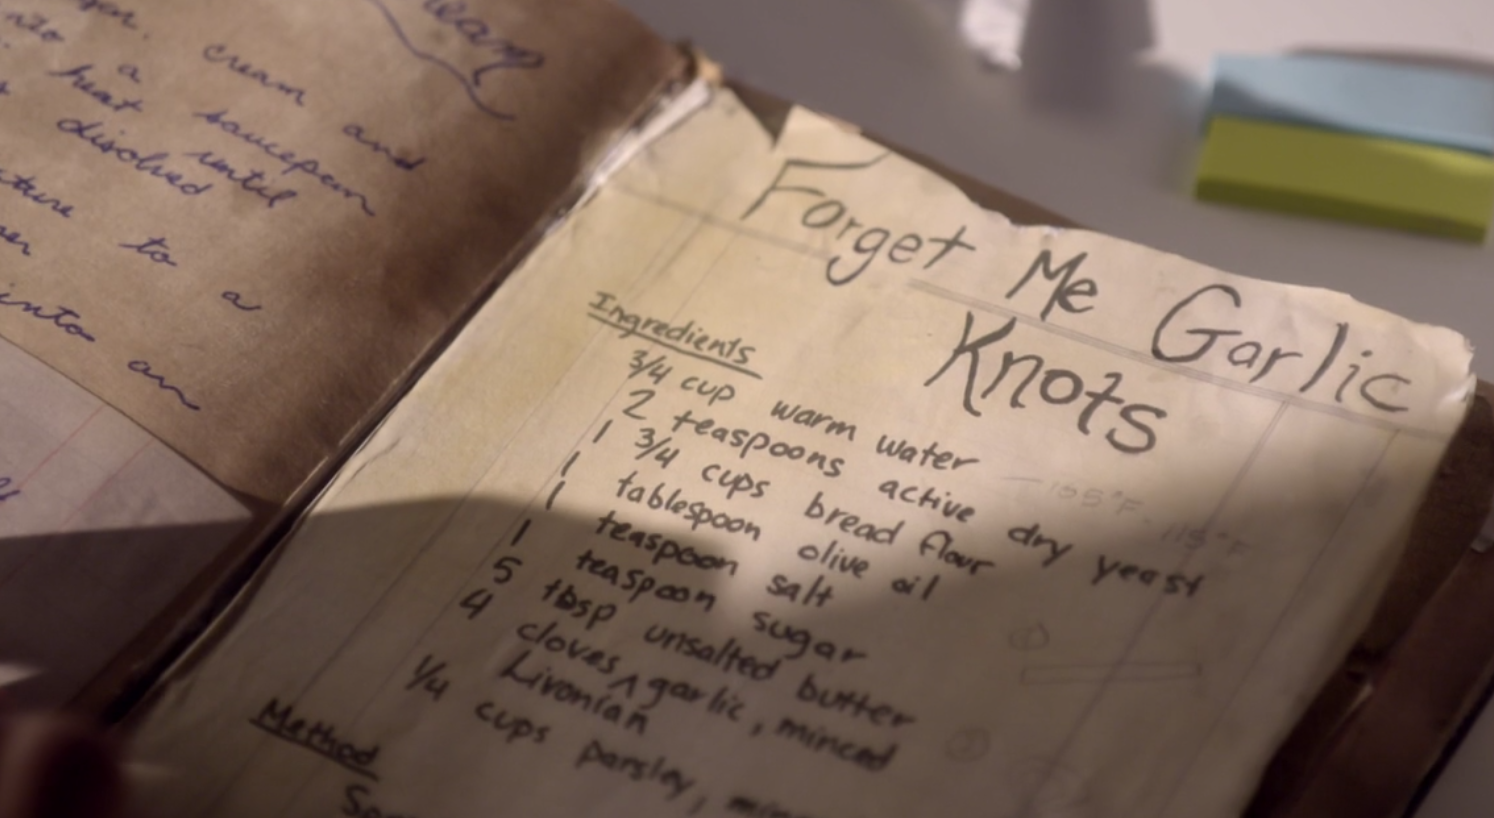 cream and
a
heat saucepan
until
disolved
to a
into an
Forget Me Garlic
Knots
Ingredients
3/4 cup warm water
2 teaspoons active dry yeast
1 3/4 cups bread flour
1 tablespoon olive oil
1 teaspoon salt
1 teaspoon sugar
5 tbsp unsalted butter
4 cloves ^ garlic, minced
Livonian
1/4 cups parsley,
Method
115°F